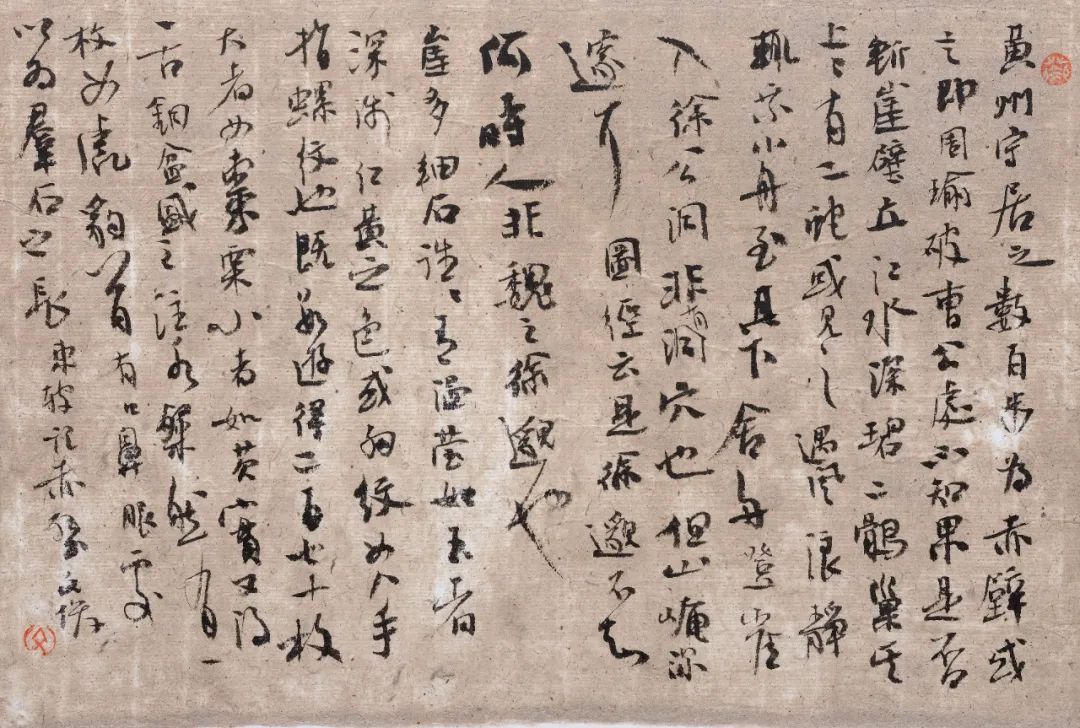 黄州守居之數百步為赤壁或
言即周瑜破曹公處不知果是否
斬崖壁立江水深碧二鶻巢其
上〻有二蛇或見之遇風浪靜
輒乘小舟至其下舍舟登崖
入徐公洞非有洞穴也但山崦深
邃耳 圖經云是徐邈不知
何時人非魏之徐邈也
崖多細石往〻有温瑩如玉者
深淺红黄之色或細紋如人手
指螺紋也既數遊得二百七十枚
大者如棗栗小者如芡實又得
一古銅盆盛之注水粲然有一
枚如虎豹首有口鼻眼處
以為羣石之長 東坡記赤壁 文